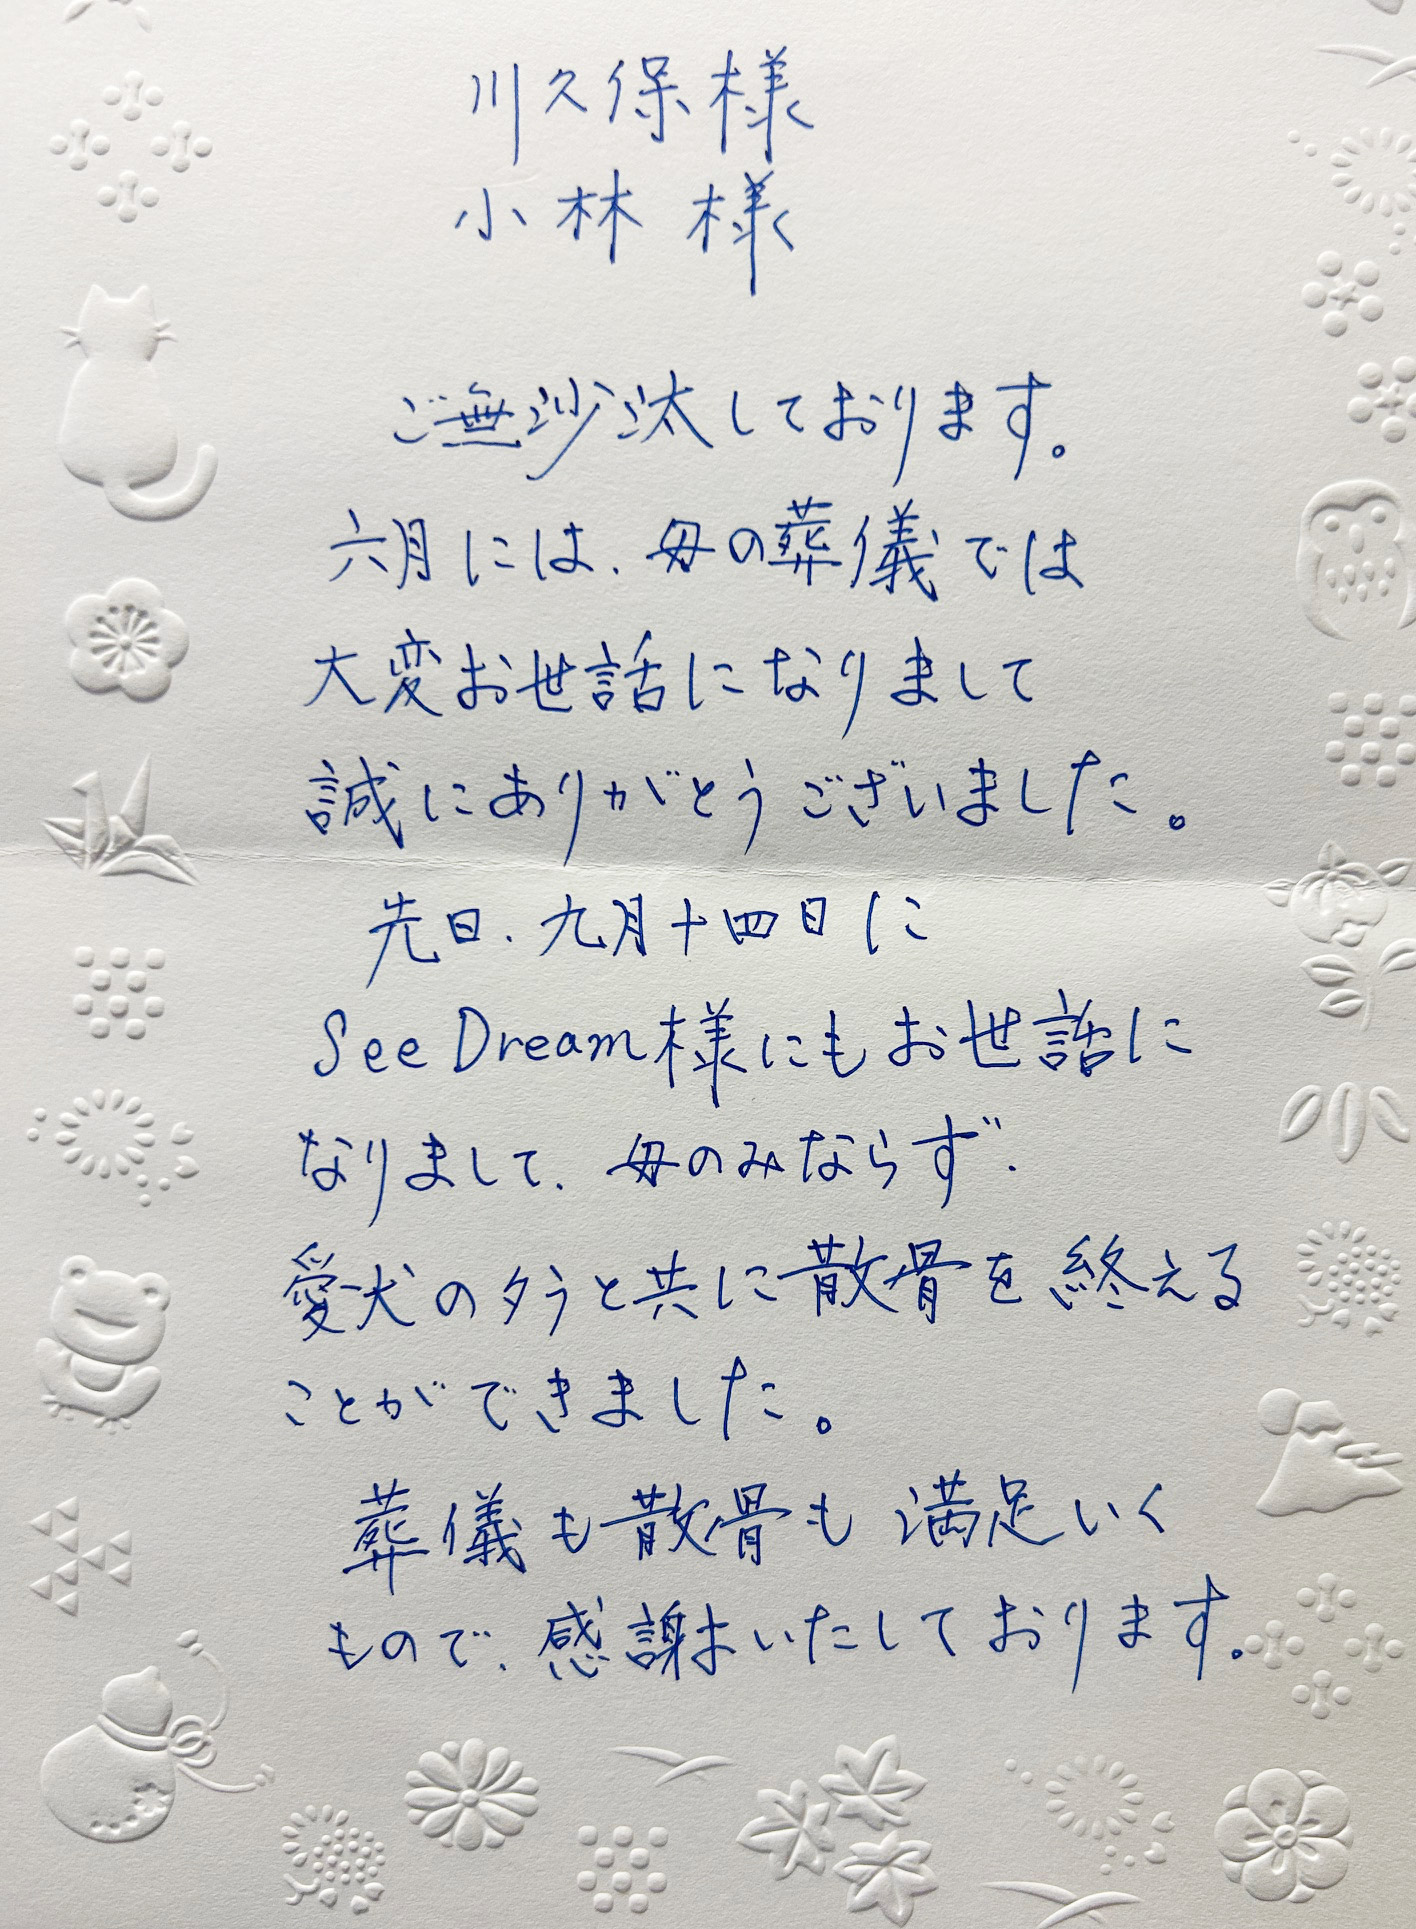 川久保様
小林 様
ご無沙汰しております。
六月には、母の葬儀では
大変お世話になりまして
誠にありがとうございました。
先日、九月十四日に
See Dream様にもお世話に
なりまして、母のみならず、
愛犬のタラと共に散骨を終える
ことができました。
葬儀も散骨も満足いく
もので、感謝いたしております。